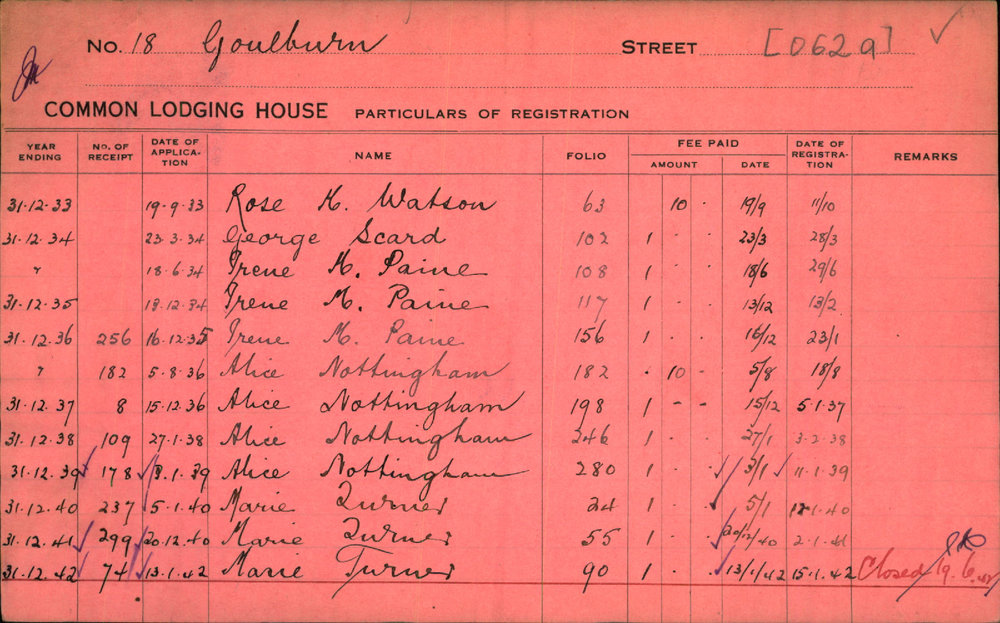 No. 18 Goulburn STREET [0629]
COMMON LODGING HOUSE PARTICULARS OF REGISTRATION
YEAR ENDING NO. OF RECEIPT DATE OF APPLICA- TION NAME FOLIO FEE PAID AMOUNT DATE DATE OF REGISTRA- TION REMARKS
31.12.33 19.9.33 Rose K. Watson 63 10 . 19/9 11/10
31.12.34 23.3.34 George Scard 102 1 . . 23/3 28/3
" 18.6.34 Irene M. Paine 108 1 . . 18/6 29/6
31.12.35 13.12.34 Irene M. Paine 117 1 . . 13/12 13/2
31.12.36 256 16.12.35 Irene M. Paine 156 1 . . 16/12 23/1
" 182 5.8.36 Alice Nottingham 182 . 10 . 5/8 18/8
31.12.37 8 15.12.36 Alice Nottingham 198 1 - - 15/12 5.1.37
31.12.38 109 27.1.38 Alice Nottingham 246 1 . . 27/1 3.2.38
31.12.39 178 3.1.39 Alice Nottingham 280 1 . . 3/1 11.1.39
31.12.40 237 5.1.40 Marie Turner 24 1 . . 5/1 .1.40
31.12.41 299 20.12.40 Marie Turner 55 1 . . 20/12/40 2.1.41
31.12.42 74 13.1.42 Marie Turner 90 1 . . 13/1/42 15.1.42 Closed 19.6.42